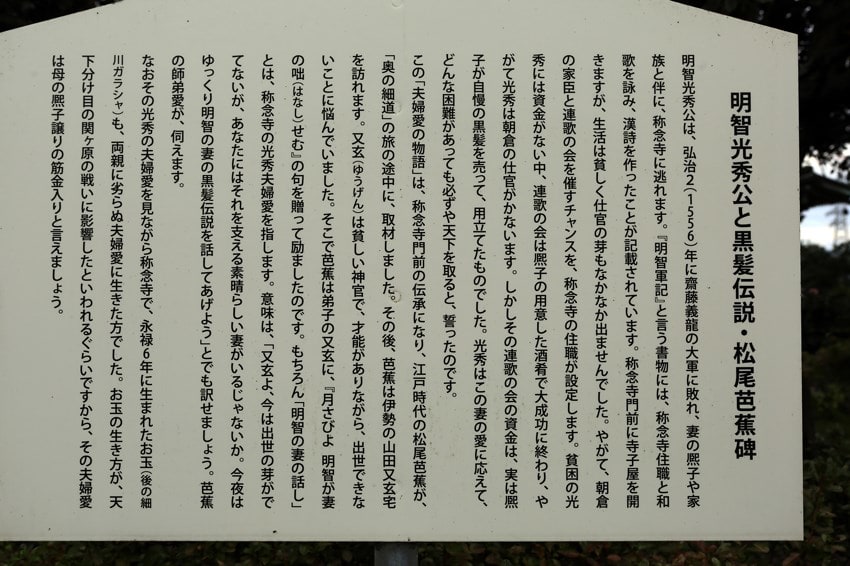 明智光秀公と黒髪伝説・松尾芭蕉碑
明智光秀公は、弘治2(1556)年に齋藤義龍の大軍に敗れ、妻の熙子や家
族と伴に、称念寺に逃れます。『明智軍記』と言う書物には、称念寺住職と和
歌を詠み、漢詩を作ったことが記載されています。称念寺門前に寺子屋を開
きますが、生活は貧しく仕官の芽もなかなか出ませんでした。やがて、朝倉
の家臣と連歌の会を催すチャンスを、称念寺の住職が設定します。貧困の光
秀には資金がない中、連歌の会は熙子の用意した酒肴で大成功に終わり、や
がて光秀は朝倉の仕官がかないます。しかしその連歌の会の資金は、実は熙
子が自慢の黒髪を売って、用立てたものでした。光秀はこの妻の愛に応えて、
どんな困難があっても必ずや天下を取ると、誓ったのです。
この「夫婦愛の物語」は、称念寺門前の伝承になり、江戸時代の松尾芭蕉が、
「奥の細道」の旅の途中に、取材しました。その後、芭蕉は伊勢の山田又玄宅
を訪れます。又玄(ゆうげん)は貧しい神官で、才能がありながら、出世できな
いことに悩んでいました。そこで芭蕉は弟子の又玄に、『月さびよ 明智が妻
の咄(はなし)せむ』の句を贈って励ましたのです。もちろん「明智の妻の話し」
とは、称念寺の光秀夫婦愛を指します。意味は、「又玄よ、今は出世の芽がで
てないが、あなたにはそれを支える素晴らしい妻がいるじゃないか。今夜は
ゆっくり明智の妻の黒髪伝説を話してあげよう」とでも訳せましょう。芭蕉
の師弟愛が、伺えます。
なおその光秀の夫婦愛を見ながら称念寺で、永禄6年に生まれたお玉(後の細
川ガラシャ)も、両親に劣らぬ夫婦愛に生きた方でした。お玉の生き方が、天
下分け目の関ヶ原の戦いに影響したといわれるぐらいですから、その夫婦愛
は母の熙子譲りの筋金入りと言えましょう。